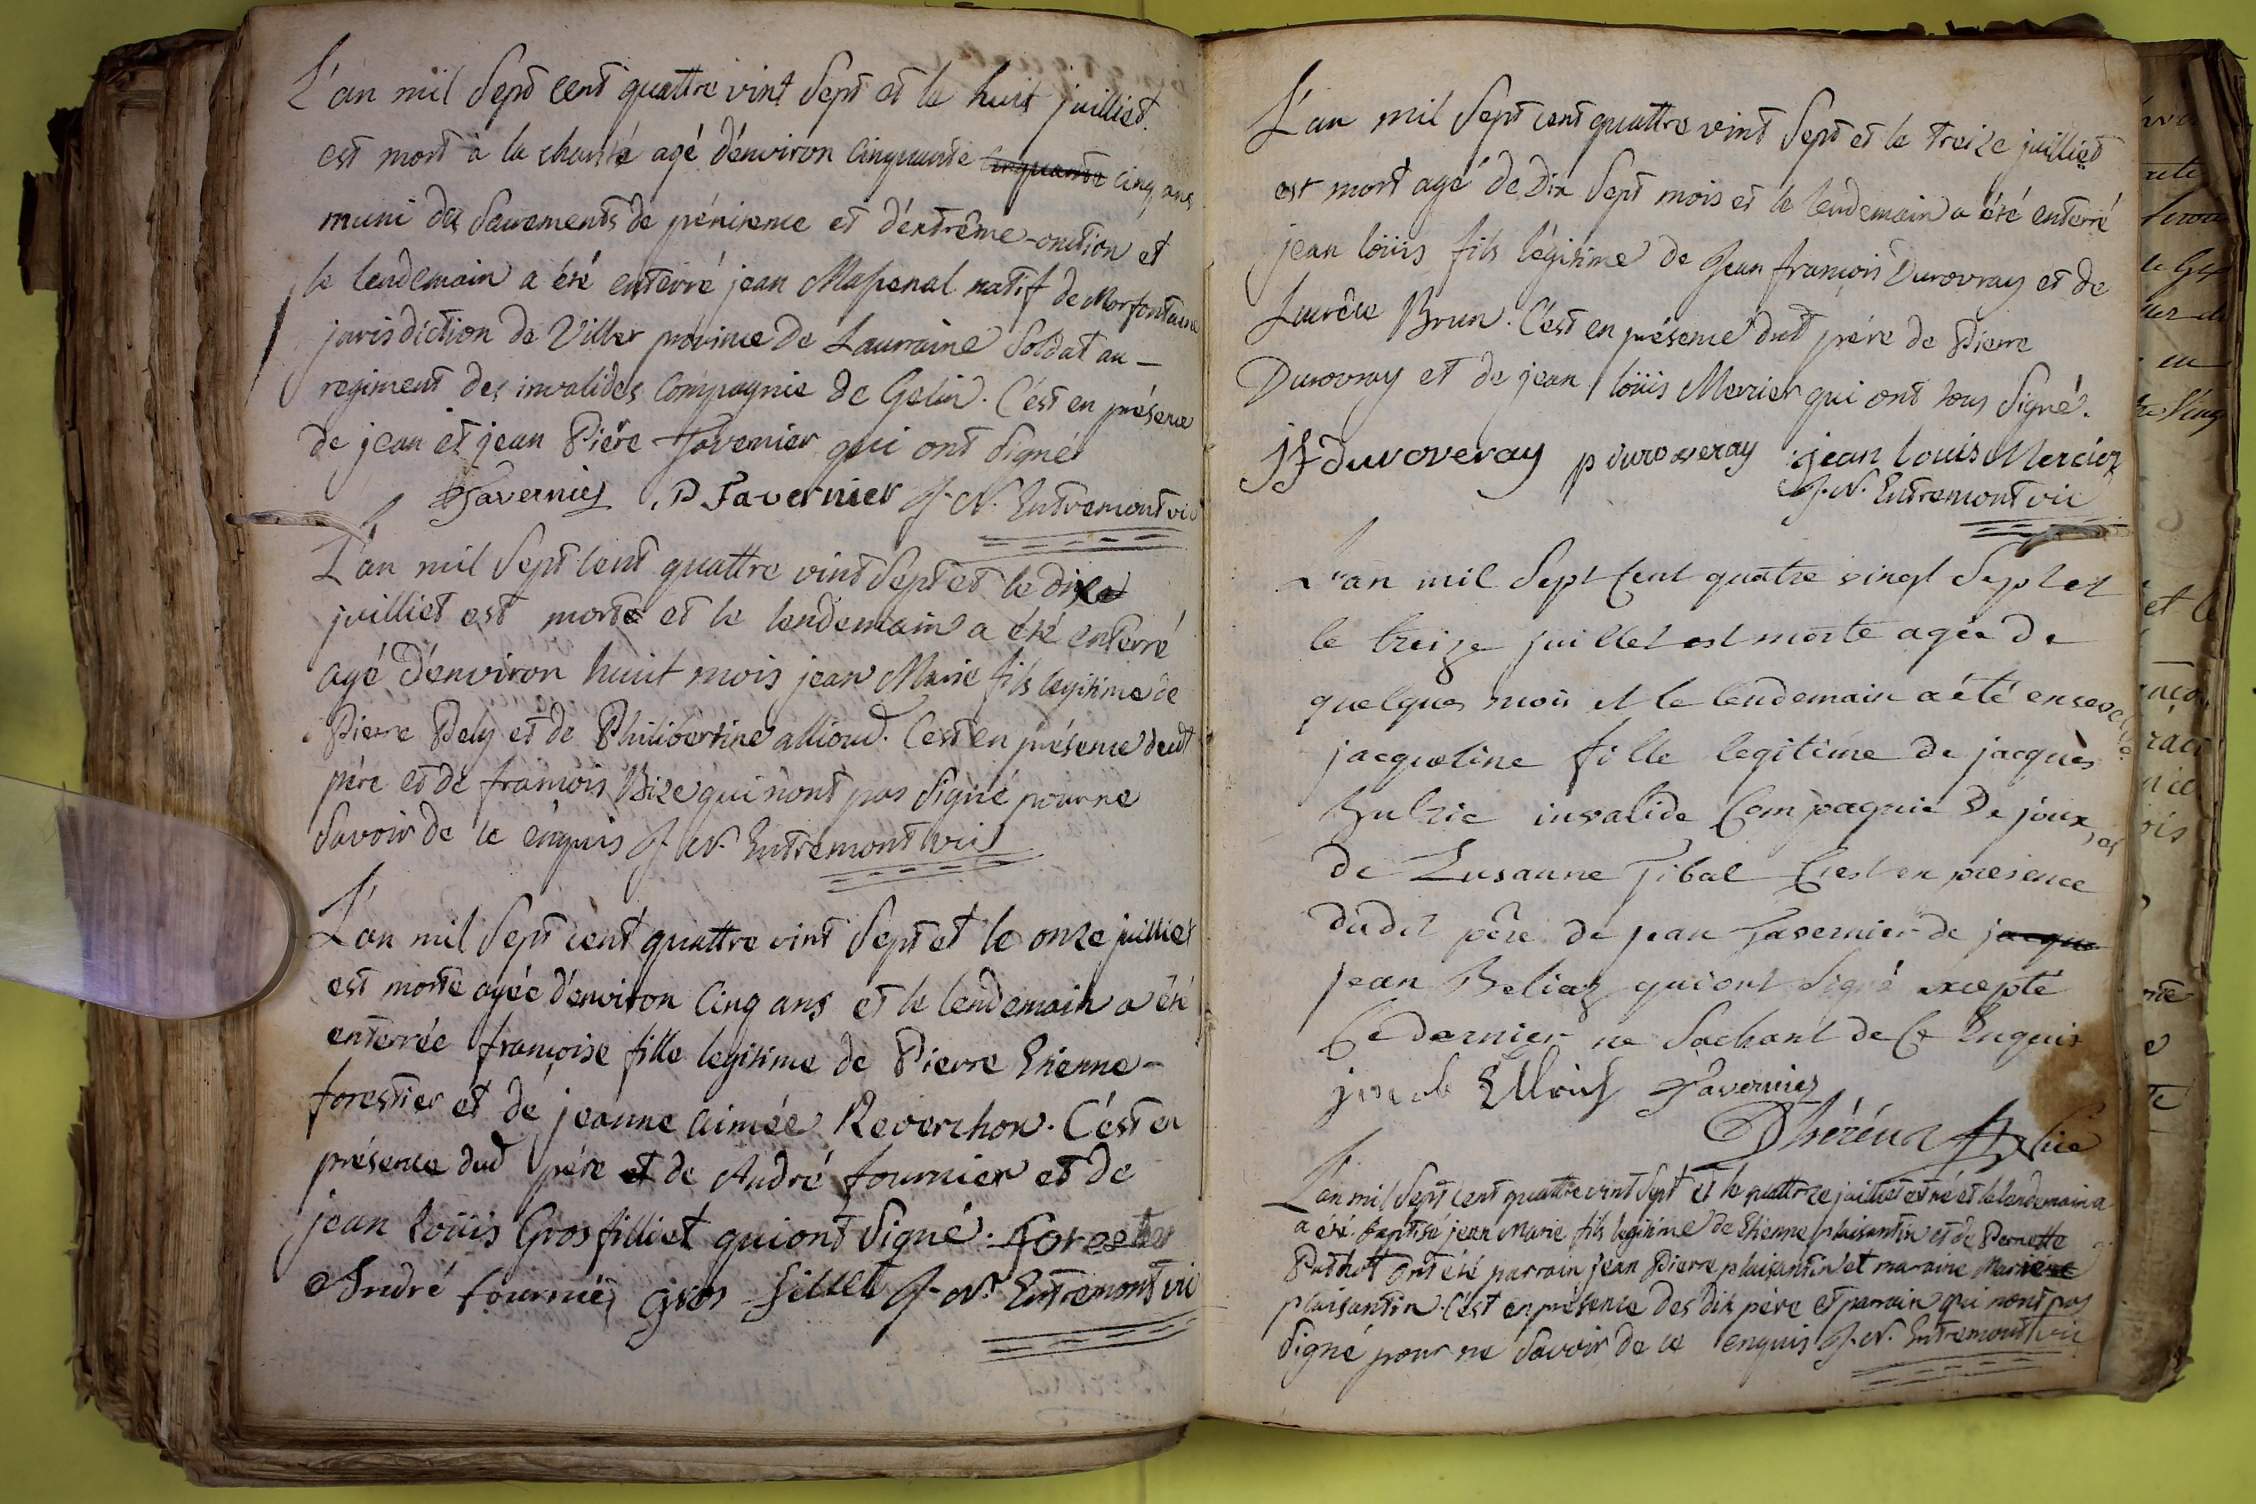 L'an mil Sept cent quattre vint Sept et le huit juilliet
est mort à la charité agé d'environ cinquante cinquante cinq ans
muni des Sacrements de pénitence et d'extrême-onction et
le lendemain a été enterré jean Massenal natif de Morfontaine
jurisdiction de Viller province de Laurraine Soldat au
regiment des invalides compagnie de Gelin. C'est en présence
de jean et jean Piére Tavernier qui ont signé
JTavernier JP Tavernier J. N. Entremont vic
L'an mil Sept cent quattre vint Sept et le dix
juilliet est mort et le lendemain a été enterré
agé d'environ huit mois jean Marie fils legitime de
Pierre Pely et de Philibertine alliord. C'est en présence dudt
père et de francois Bize qui n'ont pas signé pour ne
savoir de ce enquis J. N. Entremont vic
L'an mil Sept cent quattre vint Sept et le onze juilliet
est morte agée d'environ cinq ans et le lendemain a été
enterrée françoise fille legitime de Pierre Etienne
forestier et de jeanne aimée Reverchon. C'est en
présence dud père et de André fournier et de
jean loüis Grosfilliet qui ont signé. Forestier
André fournier gros fillet J. N. Entremont vic
L'an mil Sept cent quattre vint Sept et le treize juilliet
est mort agé de Dix Sept mois et le lendemain a été enterré
jean loüis fils légitime de Jean françois Durovray et de
Lucrèce Brun. C'est en présence dudt père de Pierre
Durovray et de jean loüis Mercier qui ont tous signé.
jf duroveray p duroveray jean louis Mercier
J. N. Entremont vic
L'an mil Sept Cent quatre vingt Sept et
le treize juillet est morte agée de
quelques mois et le lendemain a été ensevelie
jacqueline fille legitime de jacques
hulric invalide Compagnie de joux, et
de Susanne Tibal C'est en présence
dudit père de jean Tavernier de jacque
jean Beliaz qui ont signé excepté
Ce dernier ne sachant de Ce Enquis
jacob Ullrich JTavernier
vice
L'an mil Sept cent quattre vint Sept et le quattorze juilliet est né et le lendemain a
a été baptisé jean Marie fils legitime de Etienne plaisantin et de Pernette
Pathot ont été parrain jean Pierre plaisantin et maraine Mariene
plaisantin. C'est en présence des dits père et parrain qui n'ont pas
signé pour ne savoir de ce enquis J. N. Entremont vic